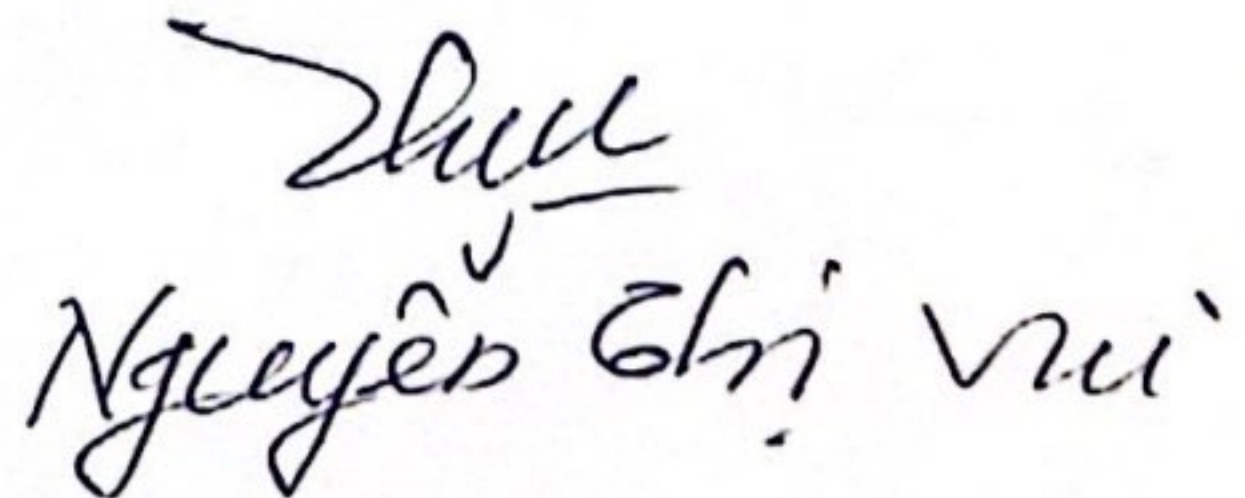 Nguyễn Thị Vui